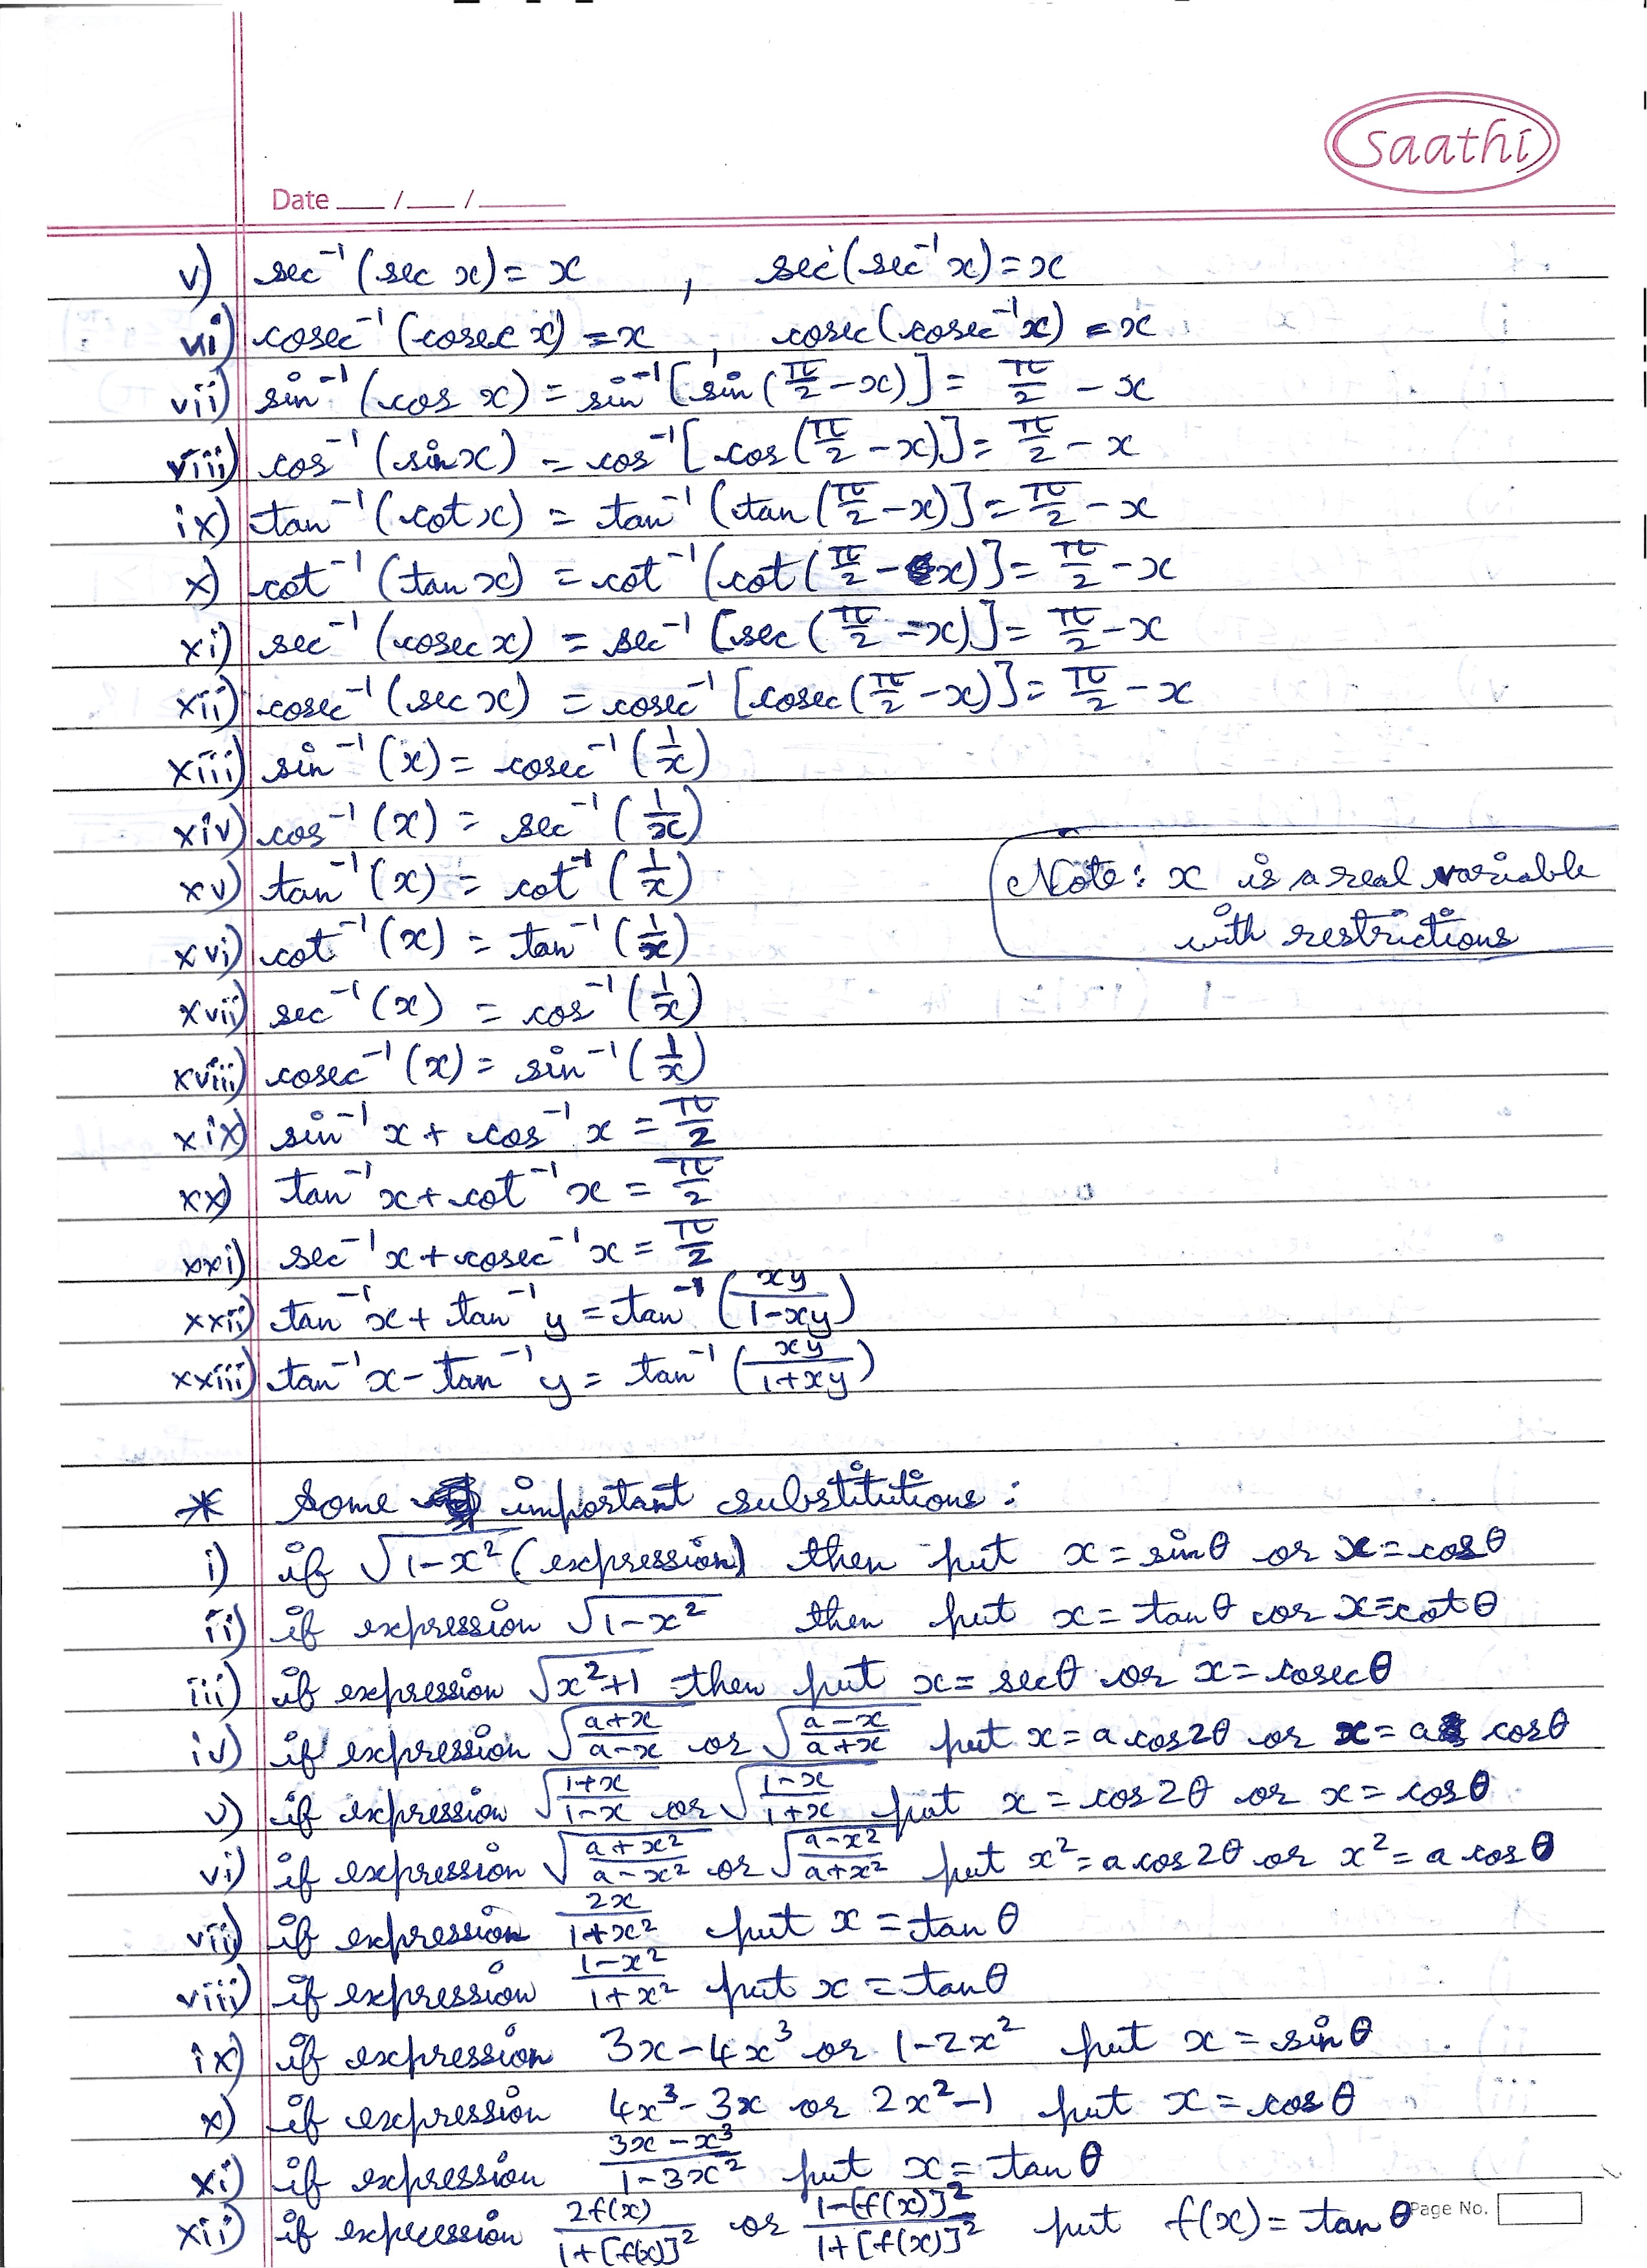 saathi
Date ___ / ___ / ______
v) sec⁻¹ (sec x) = x , sec (sec⁻¹ x) = x
vi) cosec⁻¹ (cosec x) = x , cosec (cosec⁻¹ x) = x
vii) sin⁻¹ (cos x) = sin⁻¹ [sin (π/2 - x)] = π/2 - x
viii) cos⁻¹ (sin x) = cos⁻¹ [cos (π/2 - x)] = π/2 - x
ix) tan⁻¹ (cot x) = tan⁻¹ (tan (π/2 - x)] = π/2 - x
x) cot⁻¹ (tan x) = cot⁻¹ (cot (π/2 - x)] = π/2 - x
xi) sec⁻¹ (cosec x) = sec⁻¹ [sec (π/2 - x)] = π/2 - x
xii) cosec⁻¹ (sec x) = cosec⁻¹ [cosec (π/2 - x)] = π/2 - x
xiii) sin⁻¹ (x) = cosec⁻¹ (1/x)
xiv) cos⁻¹ (x) = sec⁻¹ (1/x)
xv) tan⁻¹ (x) = cot⁻¹ (1/x)
Note: x is a real variable
with restrictions
xvi) cot⁻¹ (x) = tan⁻¹ (1/x)
xvii) sec⁻¹ (x) = cos⁻¹ (1/x)
xviii) cosec⁻¹ (x) = sin⁻¹ (1/x)
xix) sin⁻¹ x + cos⁻¹ x = π/2
xx) tan⁻¹ x + cot⁻¹ x = π/2
xxi) sec⁻¹ x + cosec⁻¹ x = π/2
xxii) tan⁻¹ x + tan⁻¹ y = tan⁻¹ (xy/(1-xy))
xxiii) tan⁻¹ x - tan⁻¹ y = tan⁻¹ (xy/(1+xy))
* Some important substitutions:
i) if √(1-x²) (expression) then put x = sinθ or x = cosθ
ii) if expression √(1-x²) then put x = tanθ or x = cotθ
iii) if expression √(x²+1) then put x = secθ or x = cosecθ
iv) if expression √((a+x)/(a-x)) or √((a-x)/(a+x)) put x = a cos2θ or x = a cosθ
v) if expression √((1+x)/(1-x)) or √((1-x)/(1+x)) put x = cos2θ or x = cosθ
vi) if expression √((a+x²)/(a-x²)) or √((a-x²)/(a+x²)) put x² = a cos2θ or x² = a cosθ
vii) if expression 2x/(1+x²) put x = tanθ
viii) if expression (1-x²)/(1+x²) put x = tanθ
ix) if expression 3x - 4x³ or 1 - 2x² put x = sinθ
x) if expression 4x³ - 3x or 2x² - 1 put x = cosθ
xi) if expression (3x - x³)/(1 - 3x²) put x = tanθ
xii) if expression 2f(x)/(1+[f(x)]²) or (1-[f(x)]²)/(1+[f(x)]²) put f(x) = tanθ
Page No.